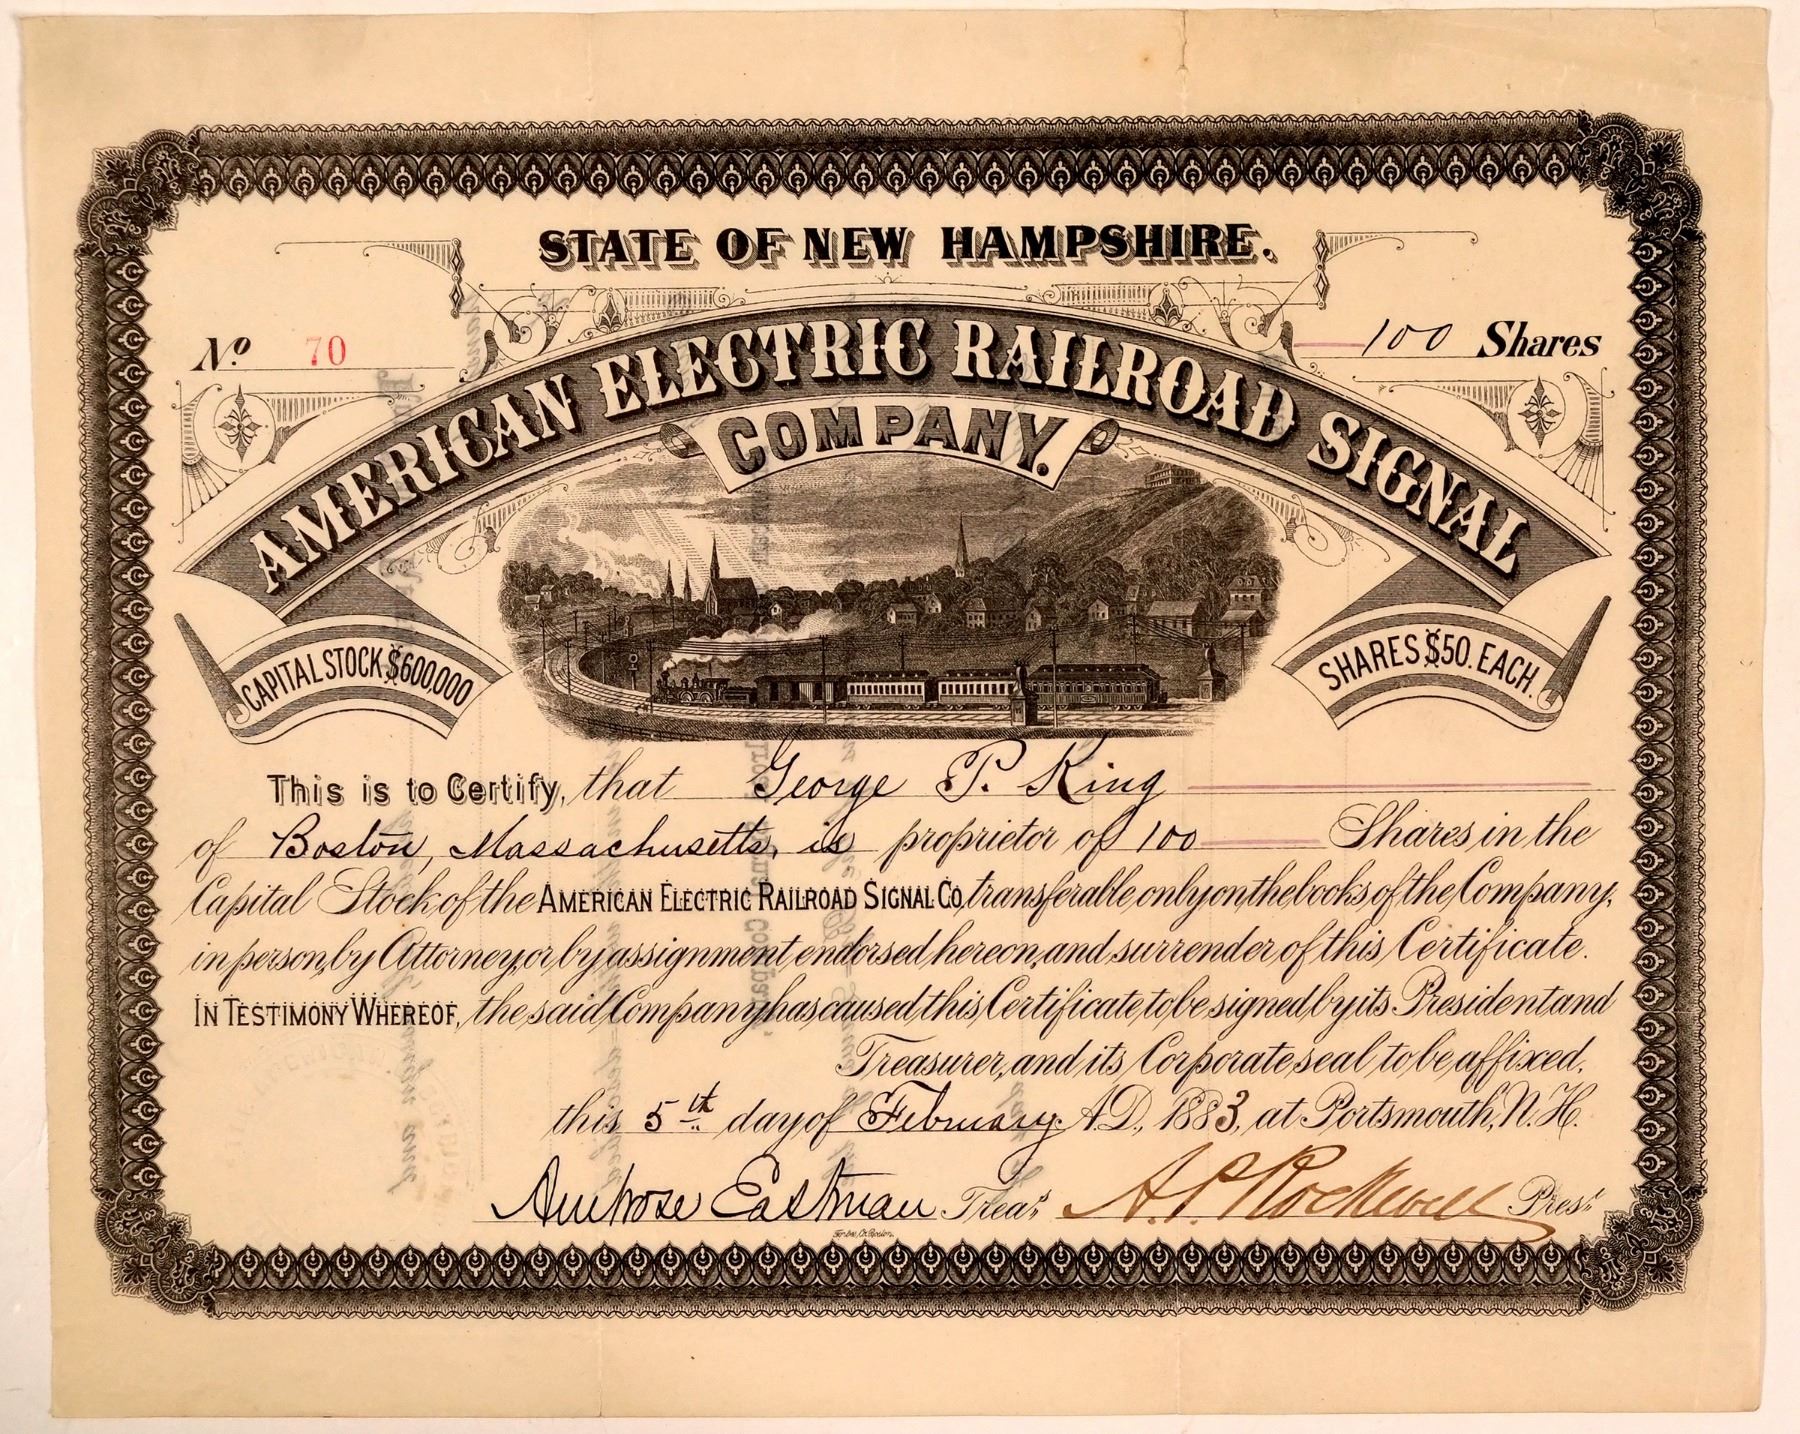 STATE OF NEW HAMPSHIRE.
No 70
100 Shares
AMERICAN ELECTRIC RAILROAD SIGNAL
COMPANY.
CAPITAL STOCK $600,000
SHARES $50. EACH.
This is to Certify, that George P. King
of Boston, Massachusetts, is proprietor of 100 Shares in the
Capital Stock of the AMERICAN ELECTRIC RAILROAD SIGNAL CO, transferable only on the books of the Company,
in person, by Attorney, or by assignment endorsed hereon, and surrender of this Certificate.
IN TESTIMONY WHEREOF, the said Company has caused this Certificate to be signed by its President and
Treasurer, and its Corporate seal to be affixed,
this 5th day of February A.D., 1883, at Portsmouth, N.H.
Ambrose Eastman Treas.
A.P. Rockwell Prest
Forbes Co. Boston.